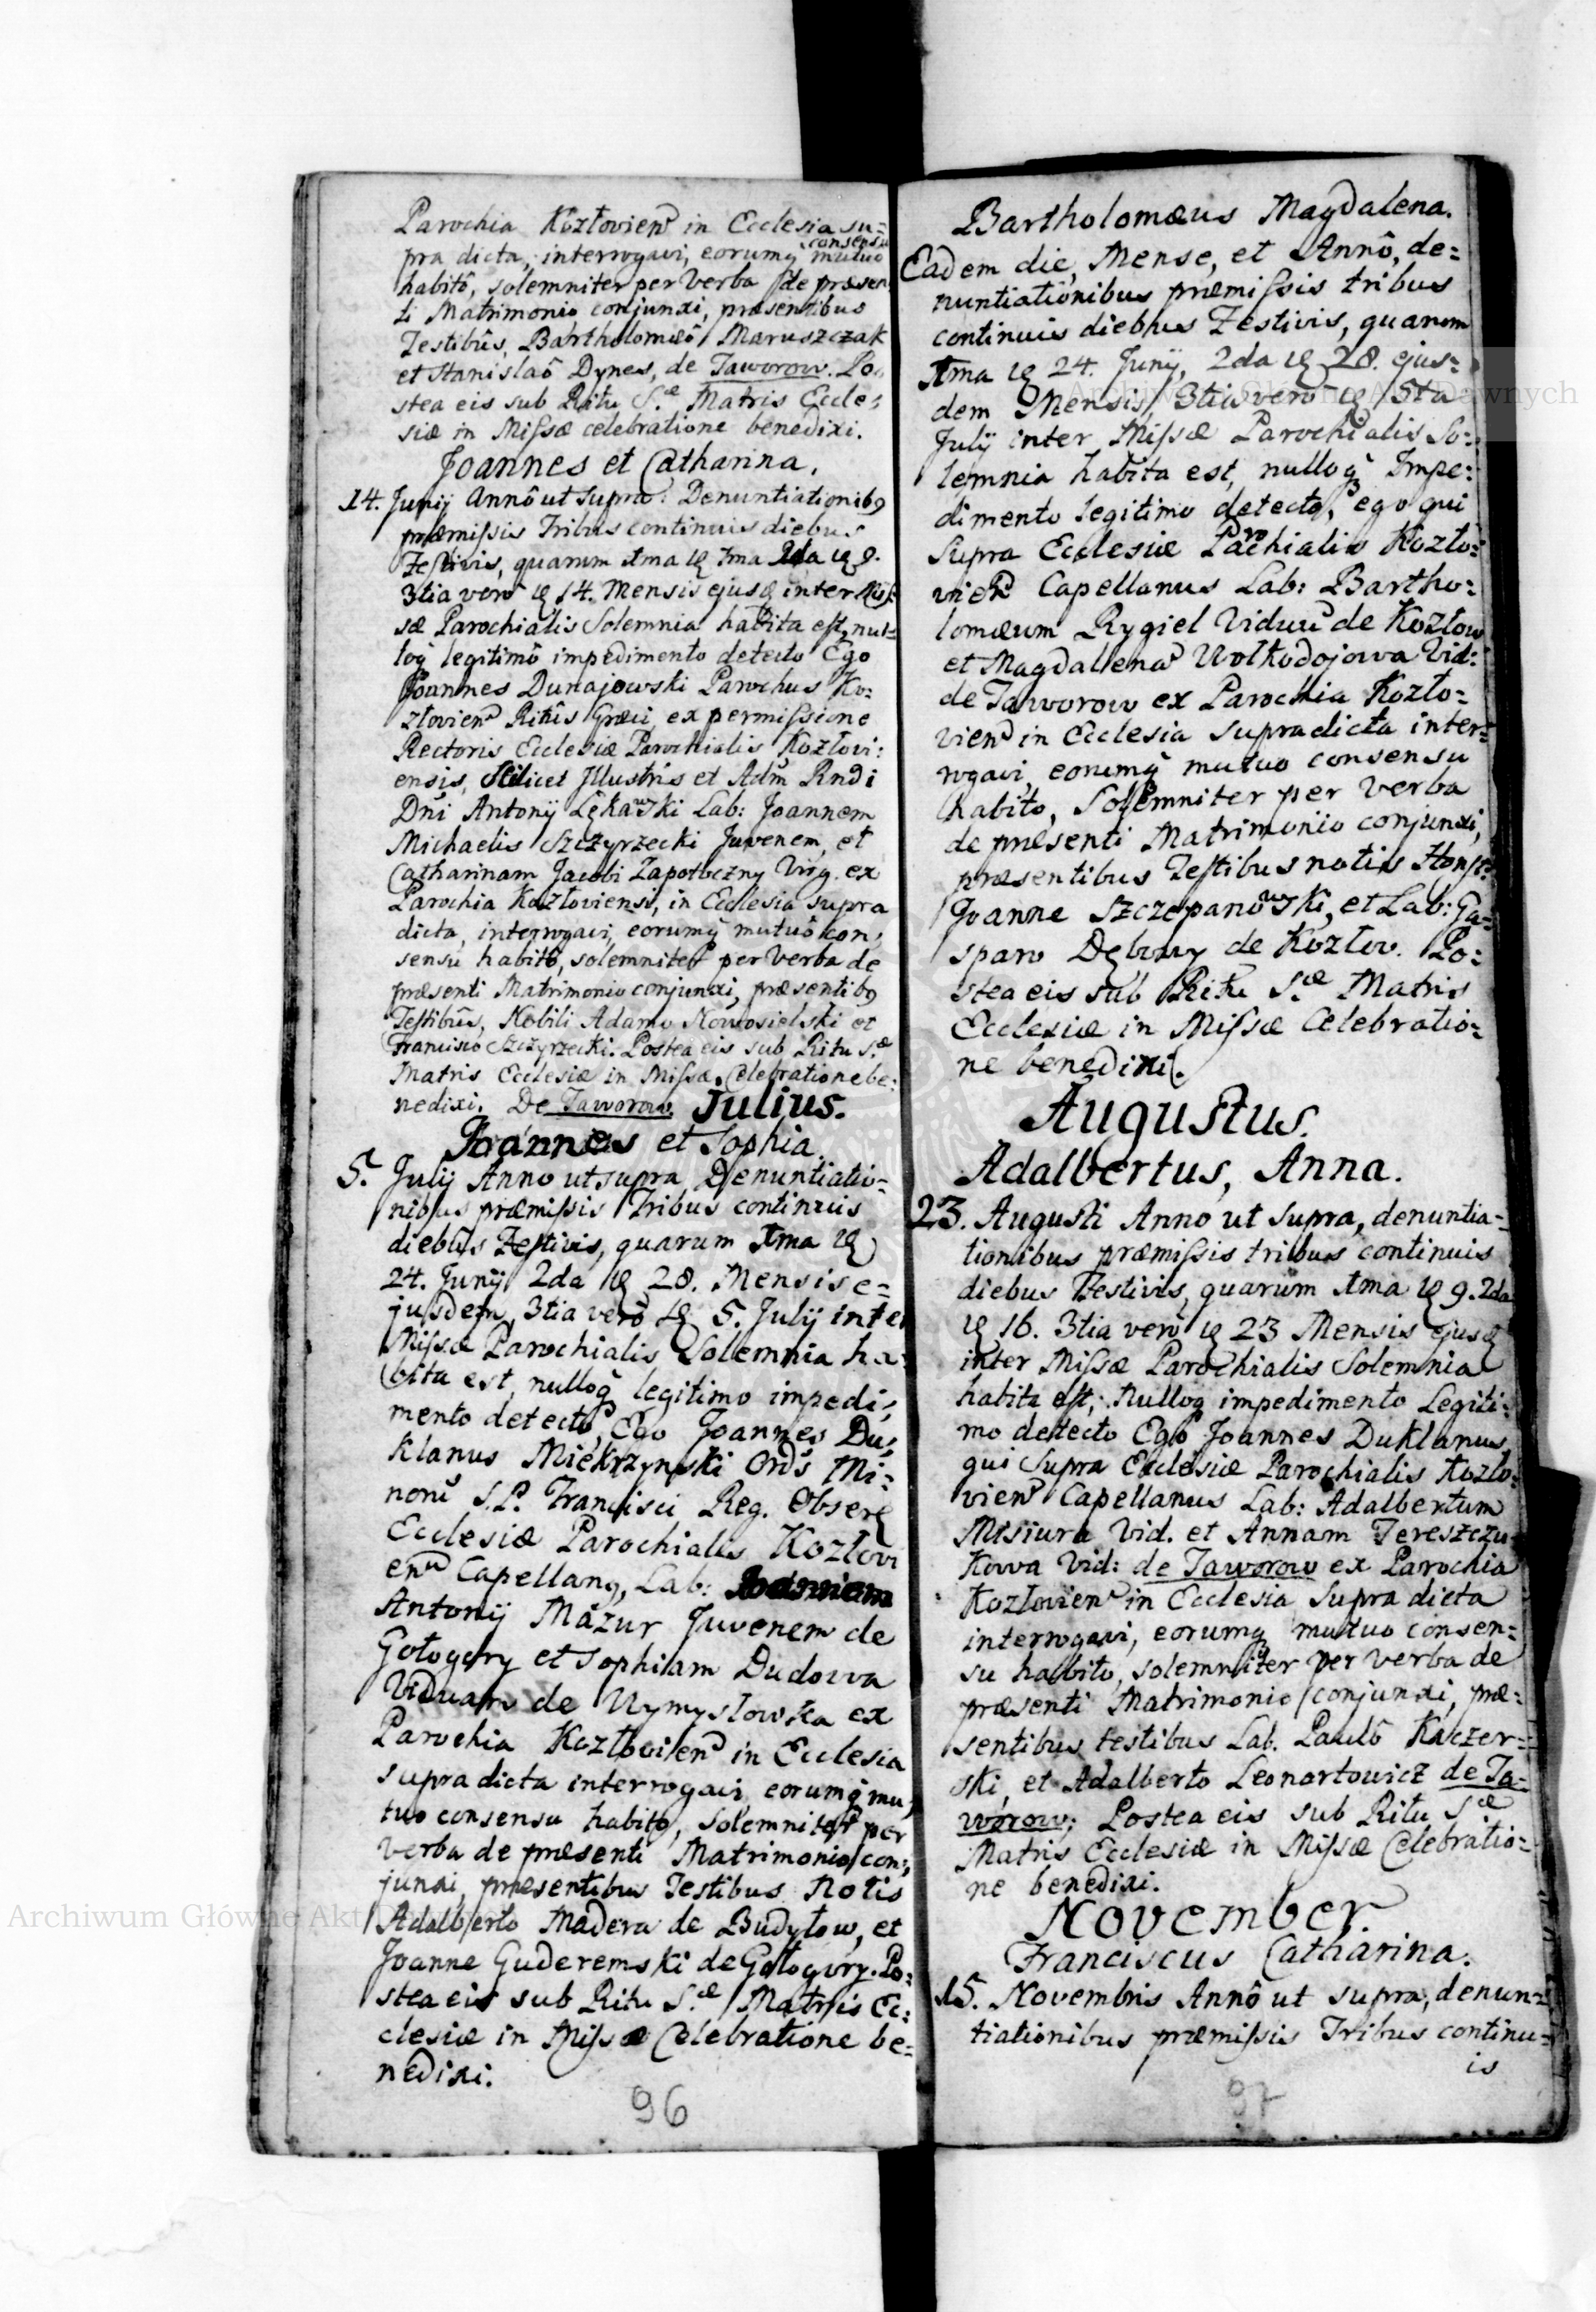 Parochia Kozłovien in Ecclesia su=
pra dicta, interrogavi, eorumq consensu mutuo
habitô, solemniter per verba de præsen
ti Matrimonio conjunxi, præsentibus
Testibûs, Bartholomæô Maruszczak
et Stanislaô Dynes, de Jaworow. Po
stea eis sub Ritu S.æ Matris Eccle=
siæ in Missæ celebratione benedixi.
Joannes et Catharina.
14. Junij Annô ut supra: Denuntiationib9
præmissis Tribus continuis diebus
Festivis, quarum 1ma 7ma 2da 9.
3tia verô 14. Mensis ejusq inter Mis=
sæ Parochialis Solemnia habita est, nul=
loq legitimô impedimento detecto Ego
Joannes Dunajowski Parochus Ko=
złovien Ritûs Græci, ex permissione
Rectoris Ecclesiæ Parochialis Kozłovi=
ensis, scilicet Jllustris et Adm Rndi
Dni Antonij Lękawski Lab: Joannem
Michaelis Szczyrzecki Juvenem, et
Catharinam Jacobi Zapotoczny Virg. ex
Parochia Kozłoviensi, in Ecclesia supra
dicta, interrogavi, eorumq mutuô con=
sensu habitô, solemniter per Verba de
præsenti Matrimonio conjunxi, præsentib9
Testibûs, Nobili Adamo Nowosielski et
Francisco Szczyrzecki. Postea eis sub Ritu S.æ
Matris Ecclesiæ in Missæ Celebratione be=
nedixi. De Jaworow. Julius.
Joannes et Sophia.
5. Julij Anno ut supra Denuntiatio=
nibus præmissis Tribus continuis
diebûs Festivis, quarum 1ma
24. Junij 2da 28. Mensis e=
jusdem, 3tia verô 5. Julij inter
Missæ Parochialis Solemnia ha=
bita est, nulloq legitimo impedi=
mento detecto, Ego Joannes Du=
klanus Miekrzynski Ords Mi=
norû S.P. Francisci Reg. Observ
Ecclesiæ Parochialis Kozłovi
en Capellan9, Lab: Joannem
Antonij Mazur Juvenem de
Gołogory et Sophiam Dudowa
Viduam de Wymysłowka ex
Parochia Kozłovien in Ecclesia
supra dicta interrogavi, eorumq mu=
tuo consensu habito, solemniter per
verba de præsenti Matrimonio con=
junxi, præsentibus Testibus Notis
Adalberto Madera de Budyłow, et
Joanne Guderemski de Gołogory. Po=
stea eis sub Ritu S.æ Matris Ec=
clesiæ in Missæ Celebratione be=
nedixi.
96
Bartholomæus Magdalena.
Eadem die, Mense, et Annô, de=
nuntiationibus præmissis tribus
continuis diebus Festivis, quarum
1ma 24. Junij, 2da 28. ejus=
dem Mensis, 3tia vero 5ta
Julij inter Missæ Parochialis So=
lemnia habita est, nulloq Impe=
dimento legitimo detecto, ego qui
Supra Ecclesiæ Parochialis Kozło=
vien Capellanus Lab: Bartho=
lomæum Rygiel Viduu de Kozłow
et Magdalena Wołkodojowa Vid:
de Jaworow ex Parochia Kozło=
vien in Ecclesia supradicta inter=
rogavi, eorumq mutuo consensu
habito, Solemniter per verba
de præsenti Matrimonio conjunxi,
præsentibus Testibus notis Honst:
Joanne Szczepanowski, et Lab: Ga=
sparo Dębowy de Kozłow. Po=
stea eis sub Ritu S.æ Matris
Ecclesiæ in Missæ Celebratio=
ne benedixi.
Augustus.
Adalbertus, Anna.
23. Augusti Anno ut supra, denuntia=
tionibus præmissis tribus continuis
diebus Festivis, quarum 1ma 9. 2da
16. 3tia verò 23 Mensis ejusq
inter Missæ Parochialis Solemnia
habita est, Nulloq impedimento Legiti=
mo detecto Ego Joannes Duklanus
qui Supra Ecclesiæ Parochialis Kozło=
vien Capellanus Lab: Adalbertum
Misiura Vid. et Annam Tereszczu=
kowa Vid: de Jaworow ex Parochia
Kozłovien in Ecclesia Supra dicta
interrogavi, eorumq mutuo consen=
su habito, solemniter per verba de
præsenti Matrimonio conjunxi, præ=
sentibus testibus Lab. Paulô Kaczer=
ski, et Adalberto Leonartowicz de Ja=
worow; Postea eis sub Ritu S.æ
Matris Ecclesiæ in Missæ Celebratio=
ne benedixi.
November.
Franciscus Catharina.
15. Novembris Annô ut supra, denun=
tiationibus præmissis Tribus continu=
is
97
Archiwum Główne Akt Dawnych
Archiwum Główne Akt D